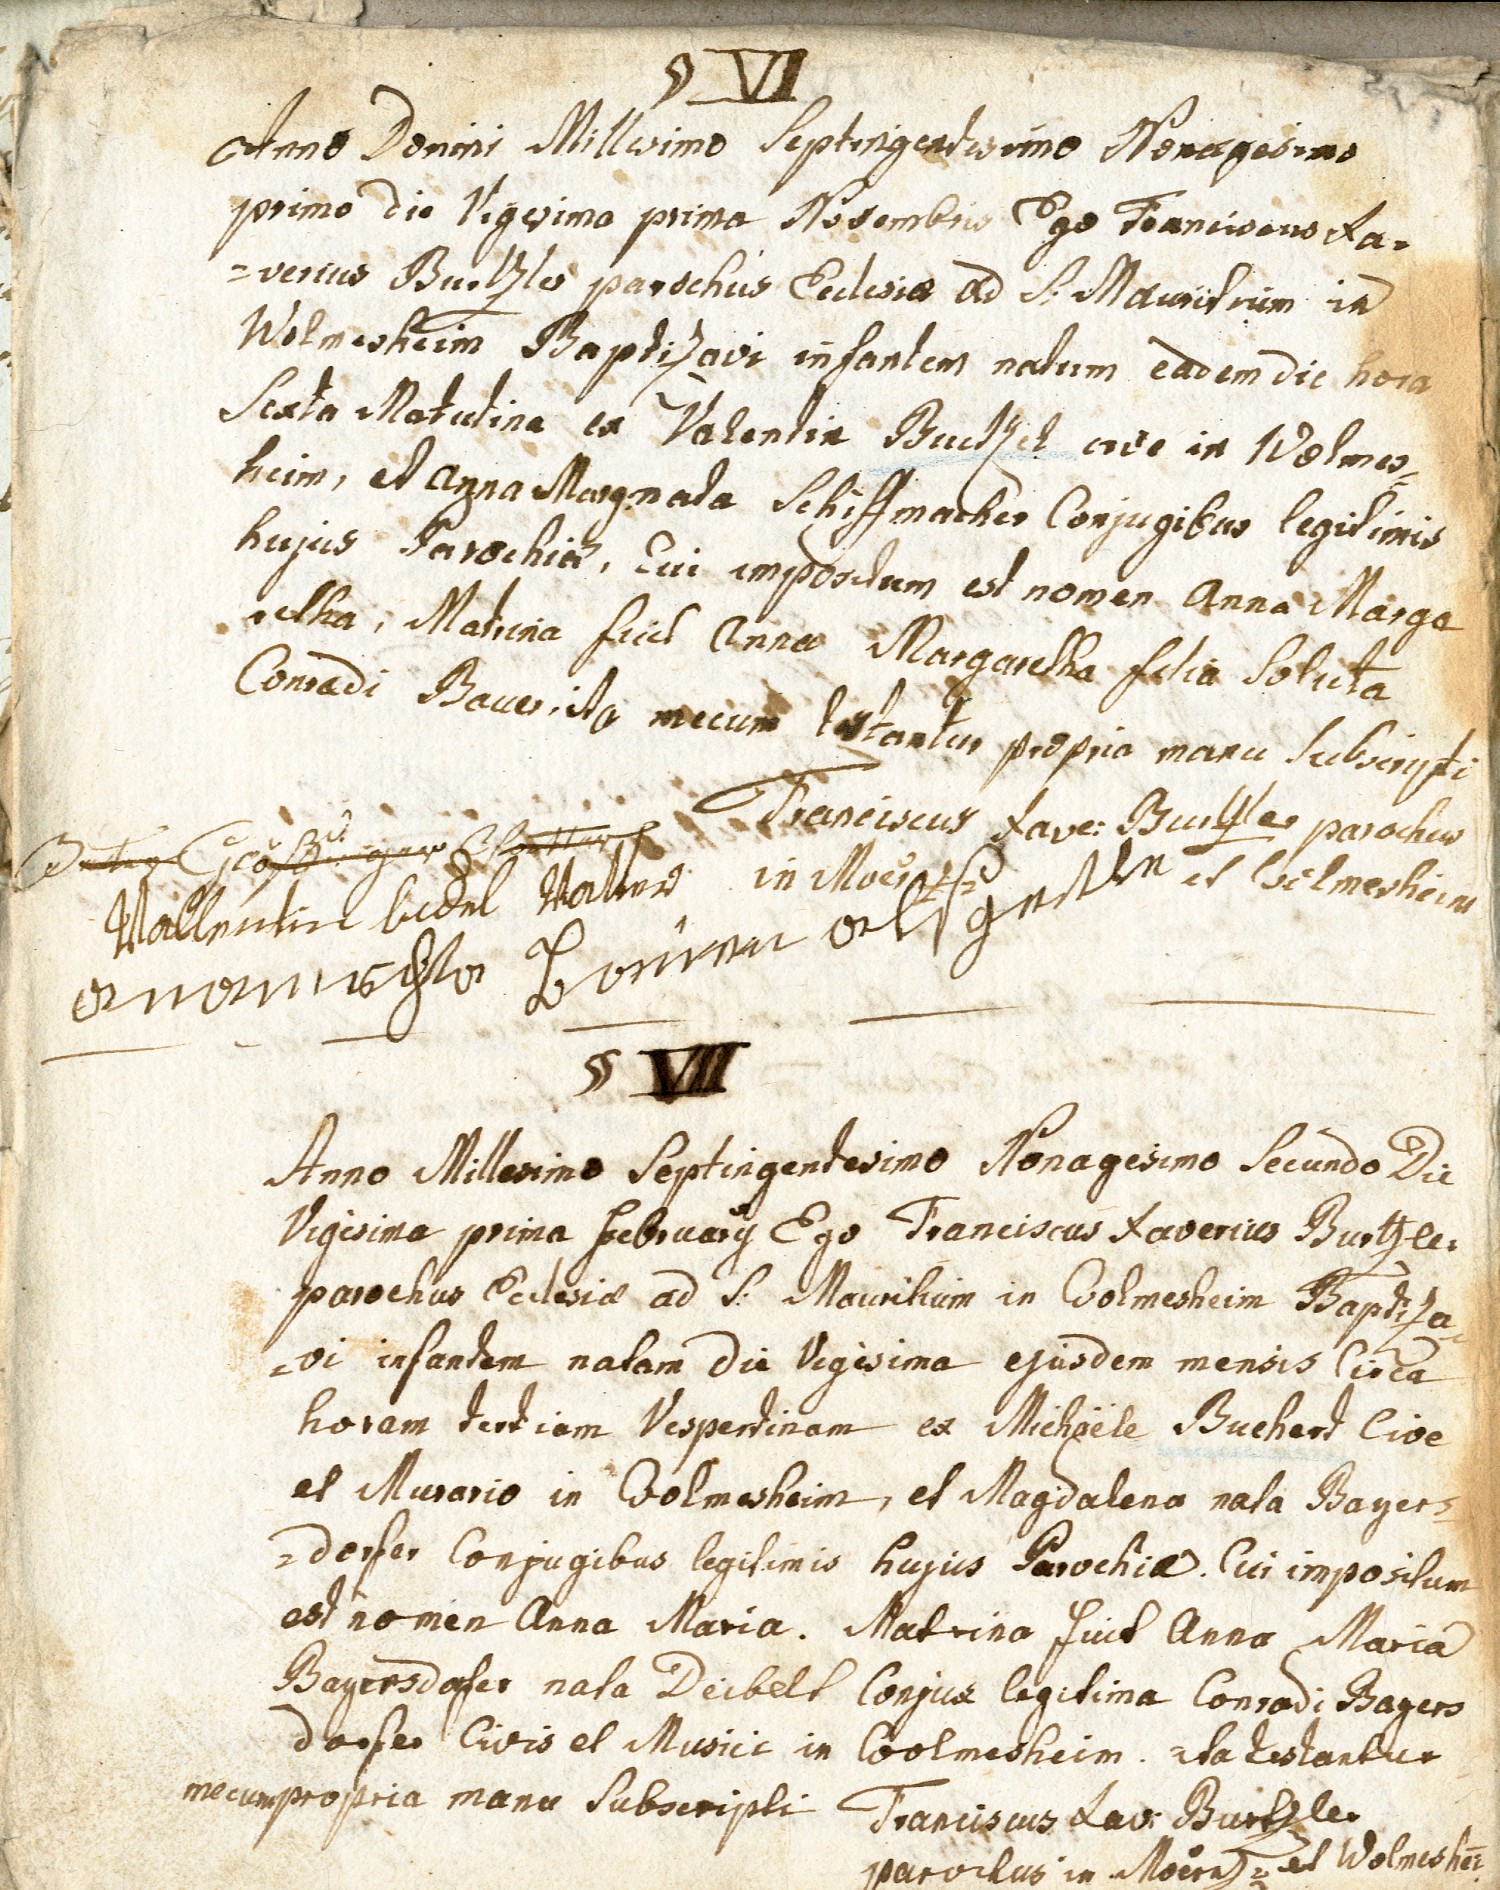 § VI
Anno Domini Millesimo Septingentesimo Nonagesimo
primo die Vigesima prima Novembris Ego Franciscus Xa-
=verius Burtzler parochus Ecclesiæ ad S: Mauritium in
Wolmesheim Baptizavi infantem natum eadem die hora
Sexta Matutina ex Valentin Buctzel cive in Wolmes=
heim, et Anna Margreata Schiffmacher Conjugibus legitimis
hujus Parochiæ, Cui impositum est nomen Anna Marga
retha, Matrina fuit Anna Margaretha filia Soluta
Conradi Bauer, ita mecum testantur propria manu Subscripti
Franciscus Xave: Burtzler parochus
in et Wolmesheim
Vallentin
§ VII
Anno Millesimo Septingentesimo Nonagesimo Secundo Die
Vigesima prima February Ego Franciscus Xaverius Burtzler
parochus Ecclesiæ ad S: Mauritium in Wolmesheim Baptiza
=vi infantem natam die Vigesima ejusdem mensis Circa
horam tertiam Vespertinam ex Michaële Buchert Cive
et Murario in Wolmesheim, et Magdalena nata Bayers=
=dorfer Conjugibus legitimis hujus Parochiæ. Cui impositum
est nomen Anna Maria. Matrina fuit Anna Maria
Bayersdofer nata Deibelt Conjux legitima Conradi Bayers
dorfer Civis et Musici in Woolmesheim. ita testantur
mecum propria manu Subscripti Franciscus Xav: Burtzler
parochus in Moërtz= et Wolmeshei: